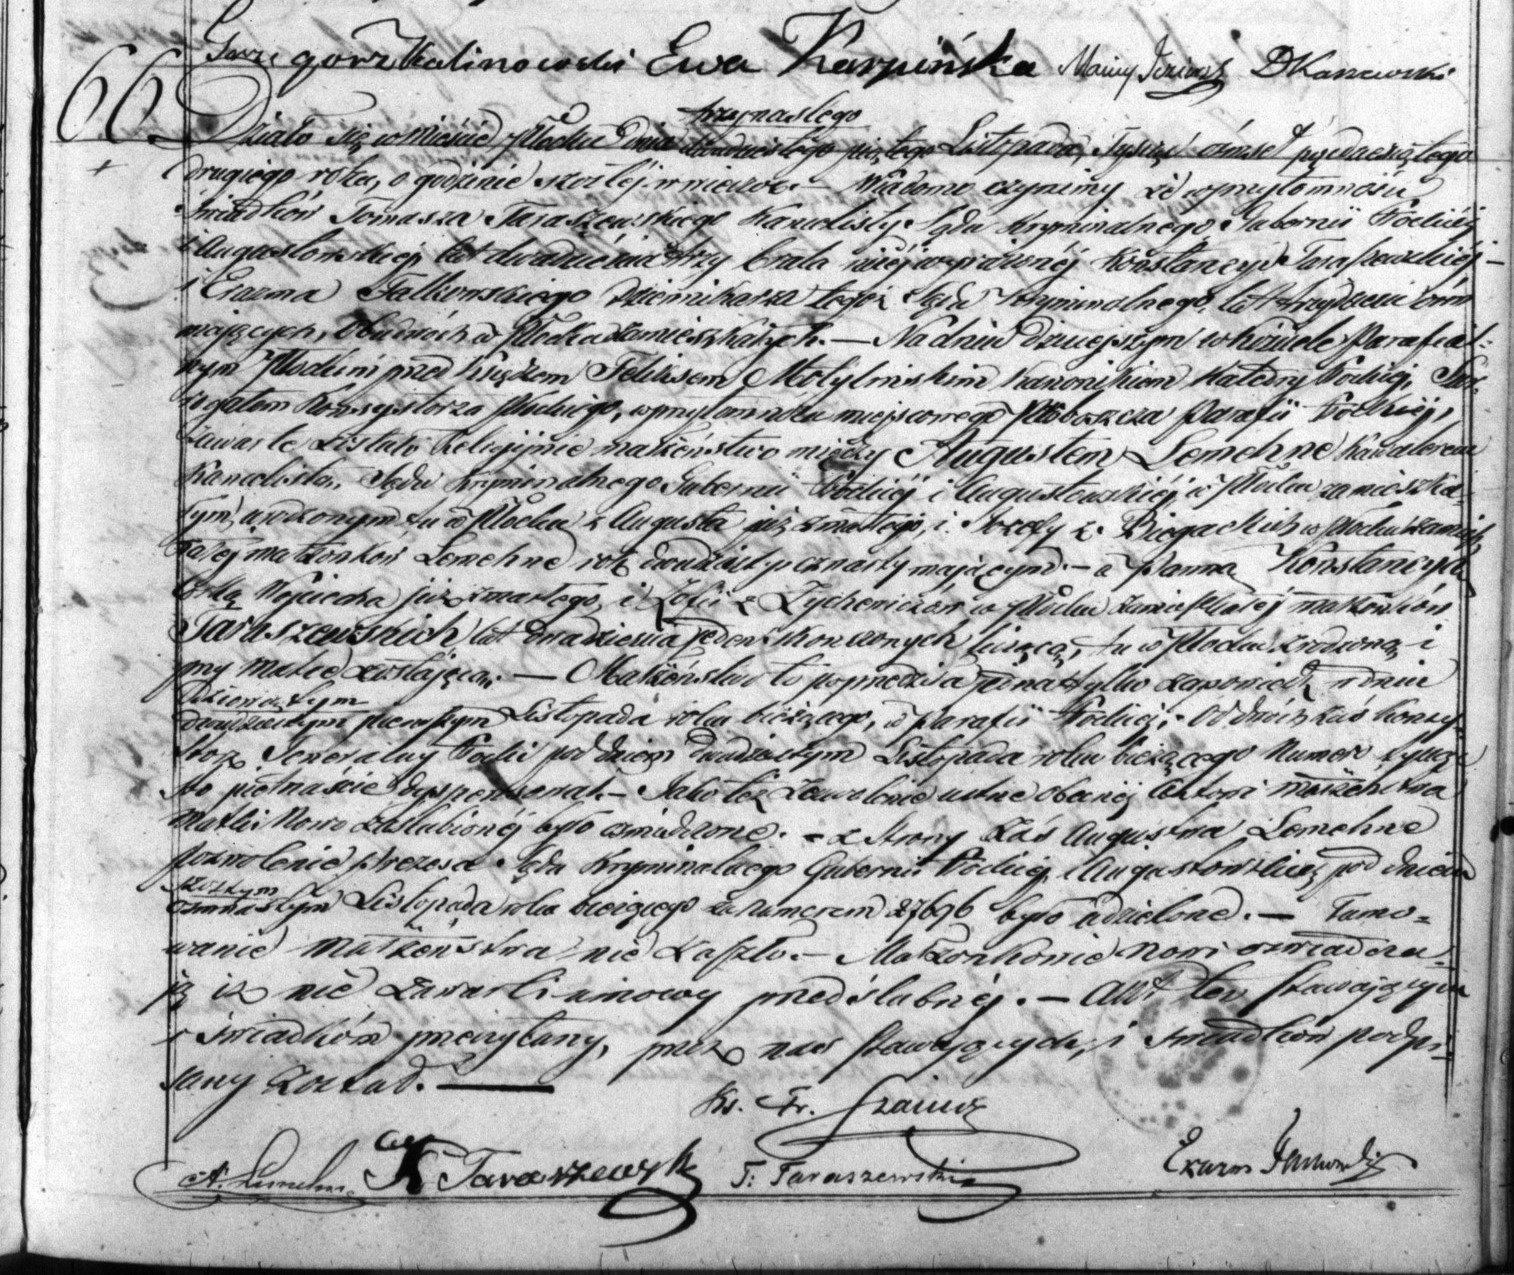 Grzegorz Kalinowski Ewa Karpińska DKaszewski
66.
trzynastego
Działo się w Mieście Płocku Dnia dwudziestego piątego Listopada, Tysiąc ośmset pięćdziesiątego
drugiego roku, o godzinie szóstej wieczor. — Wiadomo czynimy że w przytomności
świadków Tomasza Taraszewskiego Kancelisty Sądu Kryminalnego Gubernii Płockiej
i Augustowskiej lat dwadzieścia trzy brata niżej wyrażonej Konstancyi Taraszewskiej —
i Erazma Falkowskiego Dziennikarza tegoż Sądu Kryminalnego, lat trzydzieści ośm
mających, obudwóch w Płocku zamieszkałych. — Na dniu dzisiejszym w kościele Parafial-
nym Płockim przed Księdzem Felixem Kanonikiem Katedry Płockiej, Sur-
rogatem Konsystorza Płockiego, w przytomności miejscowego Proboszcza Parafii Płockiej,
zawarte zostało Religijnie małżeństwo między Augustem Lemehne Kawalerem
Kancelistą Sądu Kryminalnego Gubernii Płockiej i Augustowskiej w Płocku zamieszka-
łym, urodzonym tu w Płocku z Augusta już zmarłego, i Józefy z w Płocku zamiesz-
kałej małżonków Lemehne rok dwudziesty czwarty mającym. — a Panną Konstancyą
córką Wojciecha już zmarłego, i Zofii z Zychowiczów w Płocku zamieszkałej małżonków
Taraszewskich lat dwadzieścia jeden skończonych liczącą, tu w Płocku zrodzoną i
przy matce zostającą. — Małżeństwo to poprzedziła jedna tylko zapowiedź w dniu
dwudziestym pierwszym Listopada roku bieżącego, w Parafii Płockiej. Od dwóch zaś Konsy-
storz Jeneralny Płocki pod dniem dwudziestym Listopada roku bieżącego Numer tysiąc
sto piętnaście dyspensował. — Jako też Zezwolenie ustne obecnej aktowi małżeństwa
Matki Nowo zaślubionej było oświadczone. — z strony zaś Augusta Lemehne
pozwolenie Prezesa Sądu Kryminalnego Gubernii Płockiej i Augustowskiej pod dniem
szóstym
ósmnastym Listopada roku bieżącego za Numerem 27696 było udzielone. — Tamo-
wanie małżeństwa nie zaszło. — Małżonkowie Nowi oświadcza-
ją iż nie zawarli umowy przedślubnej. — Akt ten stawającym
i świadkom przeczytany, przez nas stawających, i świadków podpi-
sany został. —
Ks. Fr.
A. Lemehne K Taraszewsk T: Taraszewski Erazm Falkowski